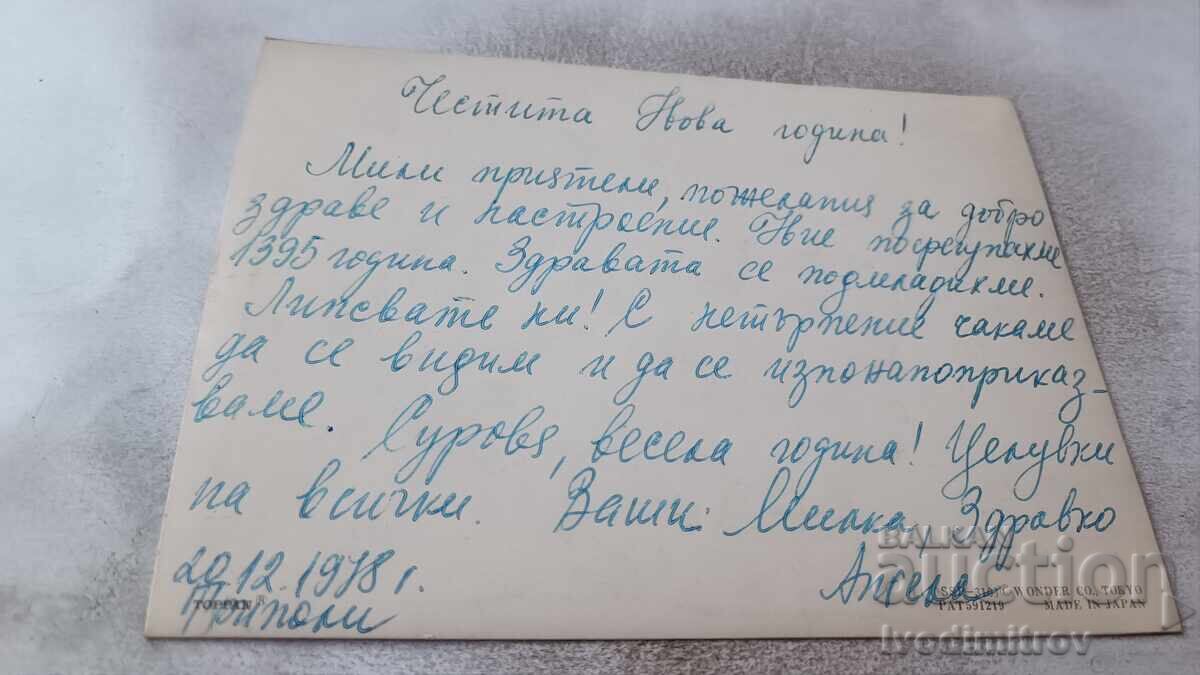 Честита Нова година!
Мили приятели, пожелания за добро
здраве и настроение. Ние посрещнахме
1395 година. Здравата се подмладихме.
Липсвате ни! С нетърпение чакаме
да се видим и да се изпонапоприказ-
ваме.
Сурова, весела година! Целувки
на всички. Ваши: Милка, Здравко
Анжела
20.12.1978 г.
Триполи
TOPPAN
WONDER CO., TOKYO
PAT 591219 MADE IN JAPAN
БАЛКАН
auction
Ivodimitrov